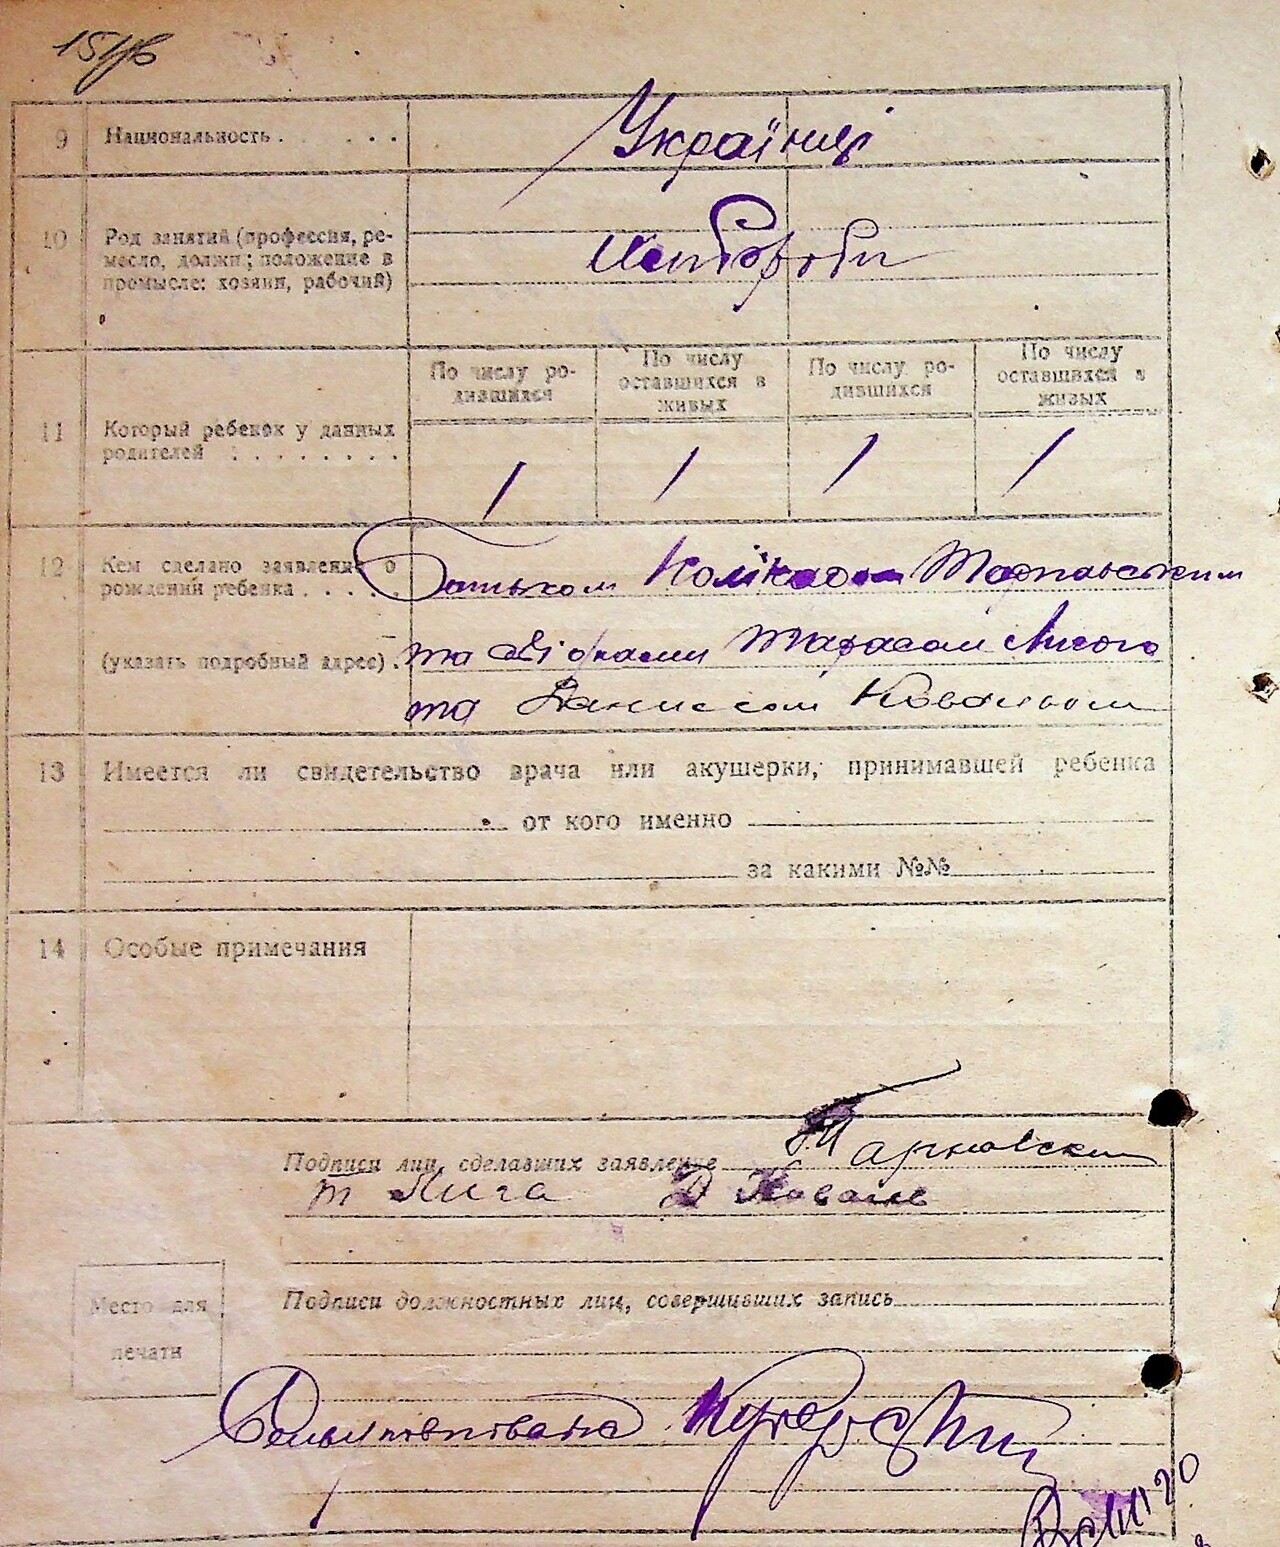 9 Национальность
Українці
10 Род занятий (профессия, ре-
месло, должн; положение в
промысле: хозяин, рабочий)
Хлібороби
По числу ро-
дившихся
По числу
оставшихся в
живых
По числу ро-
дившихся
По числу
оставшихся в
живых
11 Который ребенок у данных
родителей
1 1 1 1
12 Кем сделано заявление о
рождении ребенка
(указать подробный адрес)
Батьком Тарновським
та свідками Тарасом Лигою
та Данилом Ковальом
13 Имеется ли свидетельство врача или акушерки, принимавшей ребенка
от кого именно
за какими №№
14 Особые примечания
Подписи лиц, сделавших заявление Тарновский
Т Лига Д Коваль
Подписи должностных лиц, совершивших запись
Место для
печати